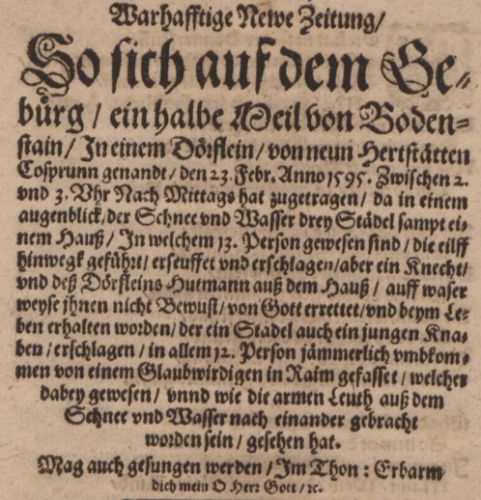 Warhafftige Newe Zeitung/
So sich auf dem Ge-
bürg / ein halbe Meil von Boden-
stain/ In einem Dörflein/ von neun Hertstätten
Cosprunn genandt/ den 23. Febr. Anno 1595. Zwischen 2.
vnd 3. Vhr Nach Mittags hat zugetragen/ da in einem
augenblick/ der Schnee vnd Wasser drey Städel sampt ei-
nem Hauß/ In welchem 13. Person gewesen sind/ die eilff
hinwegk geführt/ erseuffet vnd erschlagen/ aber ein Knecht/
vnd deß Dörfleins Hutmann auß dem Hauß/ auff waser
weyse jhnen nicht Bewust/ von Gott errettet/ vnd beym Le-
ben erhalten worden/ der ein Stadel auch ein jungen Kna-
ben/ erschlagen/ in allem 12. Person jämmerlich vmbkom-
men von einem Glaubwirdigen in Raim gefasset/ welcher
dabey gewesen/ vnnd wie die armen Leuth auß dem
Schnee vnd Wasser nach einander gebracht
worden sein/ gesehen hat.
Mag auch gesungen werden/ Im Thon: Erbarm
dich mein O Herr Gott/ ꝛc.